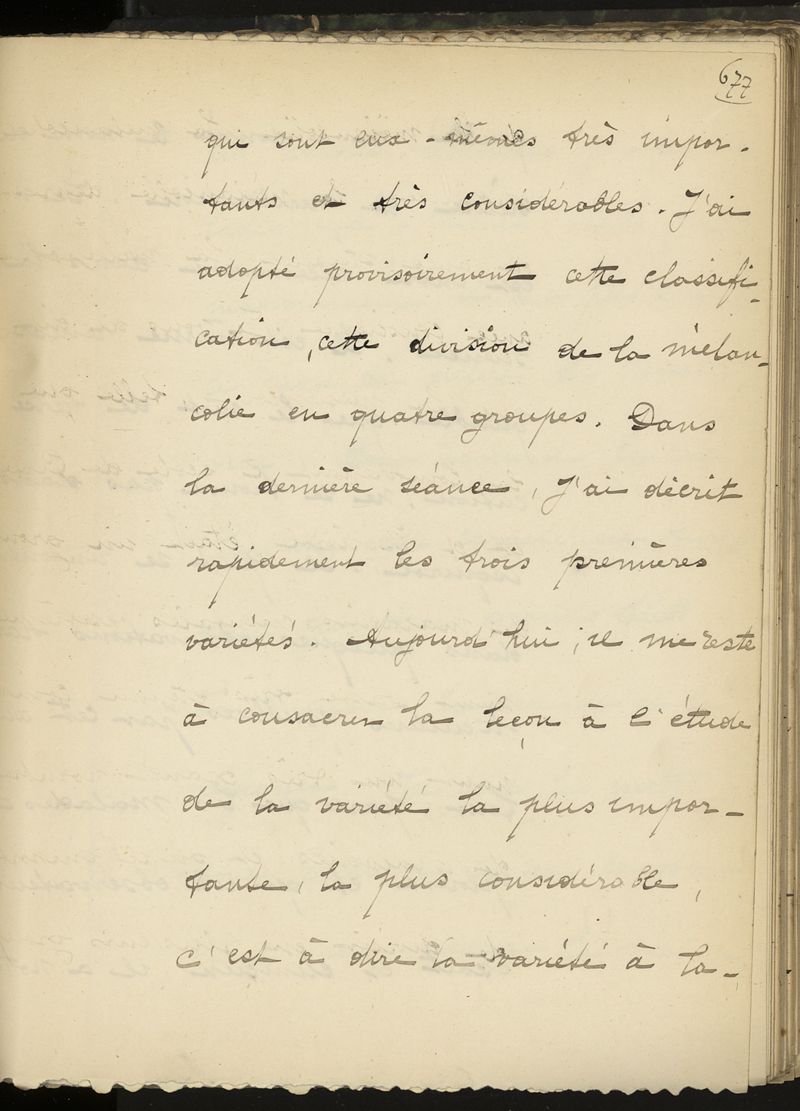 677
qui sont eux-mêmes très impor-
tants et très considérables. J'ai
adopté provisoirement cette classifi-
cation, cette division de la mélan-
colie en quatre groupes. Dans
la dernière séance, J'ai décrit
rapidement les trois premières
variétés. Aujourd'hui, il me reste
à consacrer la leçon à l'étude
de la variété la plus impor-
tante, la plus considérable,
c'est à dire la variété à la-